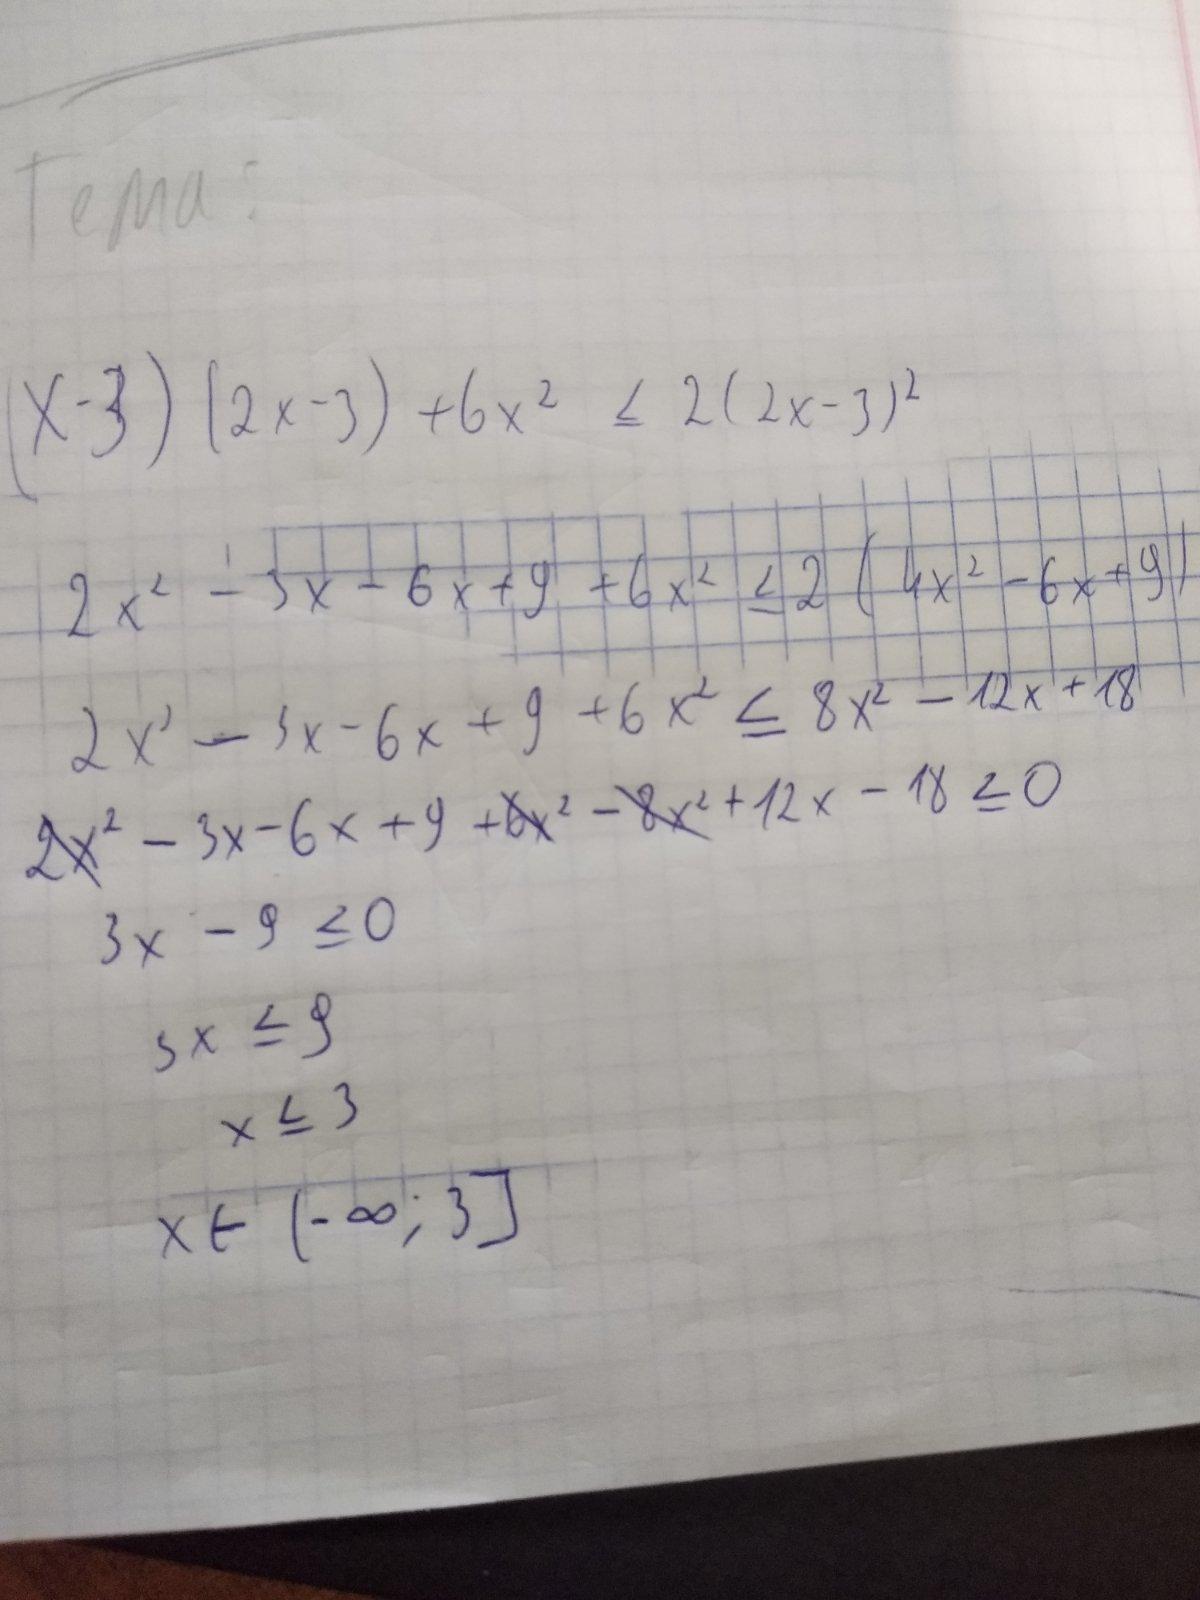 Тема:
(x-3)(2x-3)+6x² ≤ 2(2x-3)²
2x² - 3x - 6x + 9 + 6x² ≤ 2(4x² - 6x + 9)
2x² - 3x - 6x + 9 + 6x² ≤ 8x² - 12x + 18
2x² - 3x - 6x + 9 + 6x² - 8x² + 12x - 18 ≤ 0
3x - 9 ≤ 0
3x ≤ 9
x ≤ 3
x ∈ (-∞; 3]